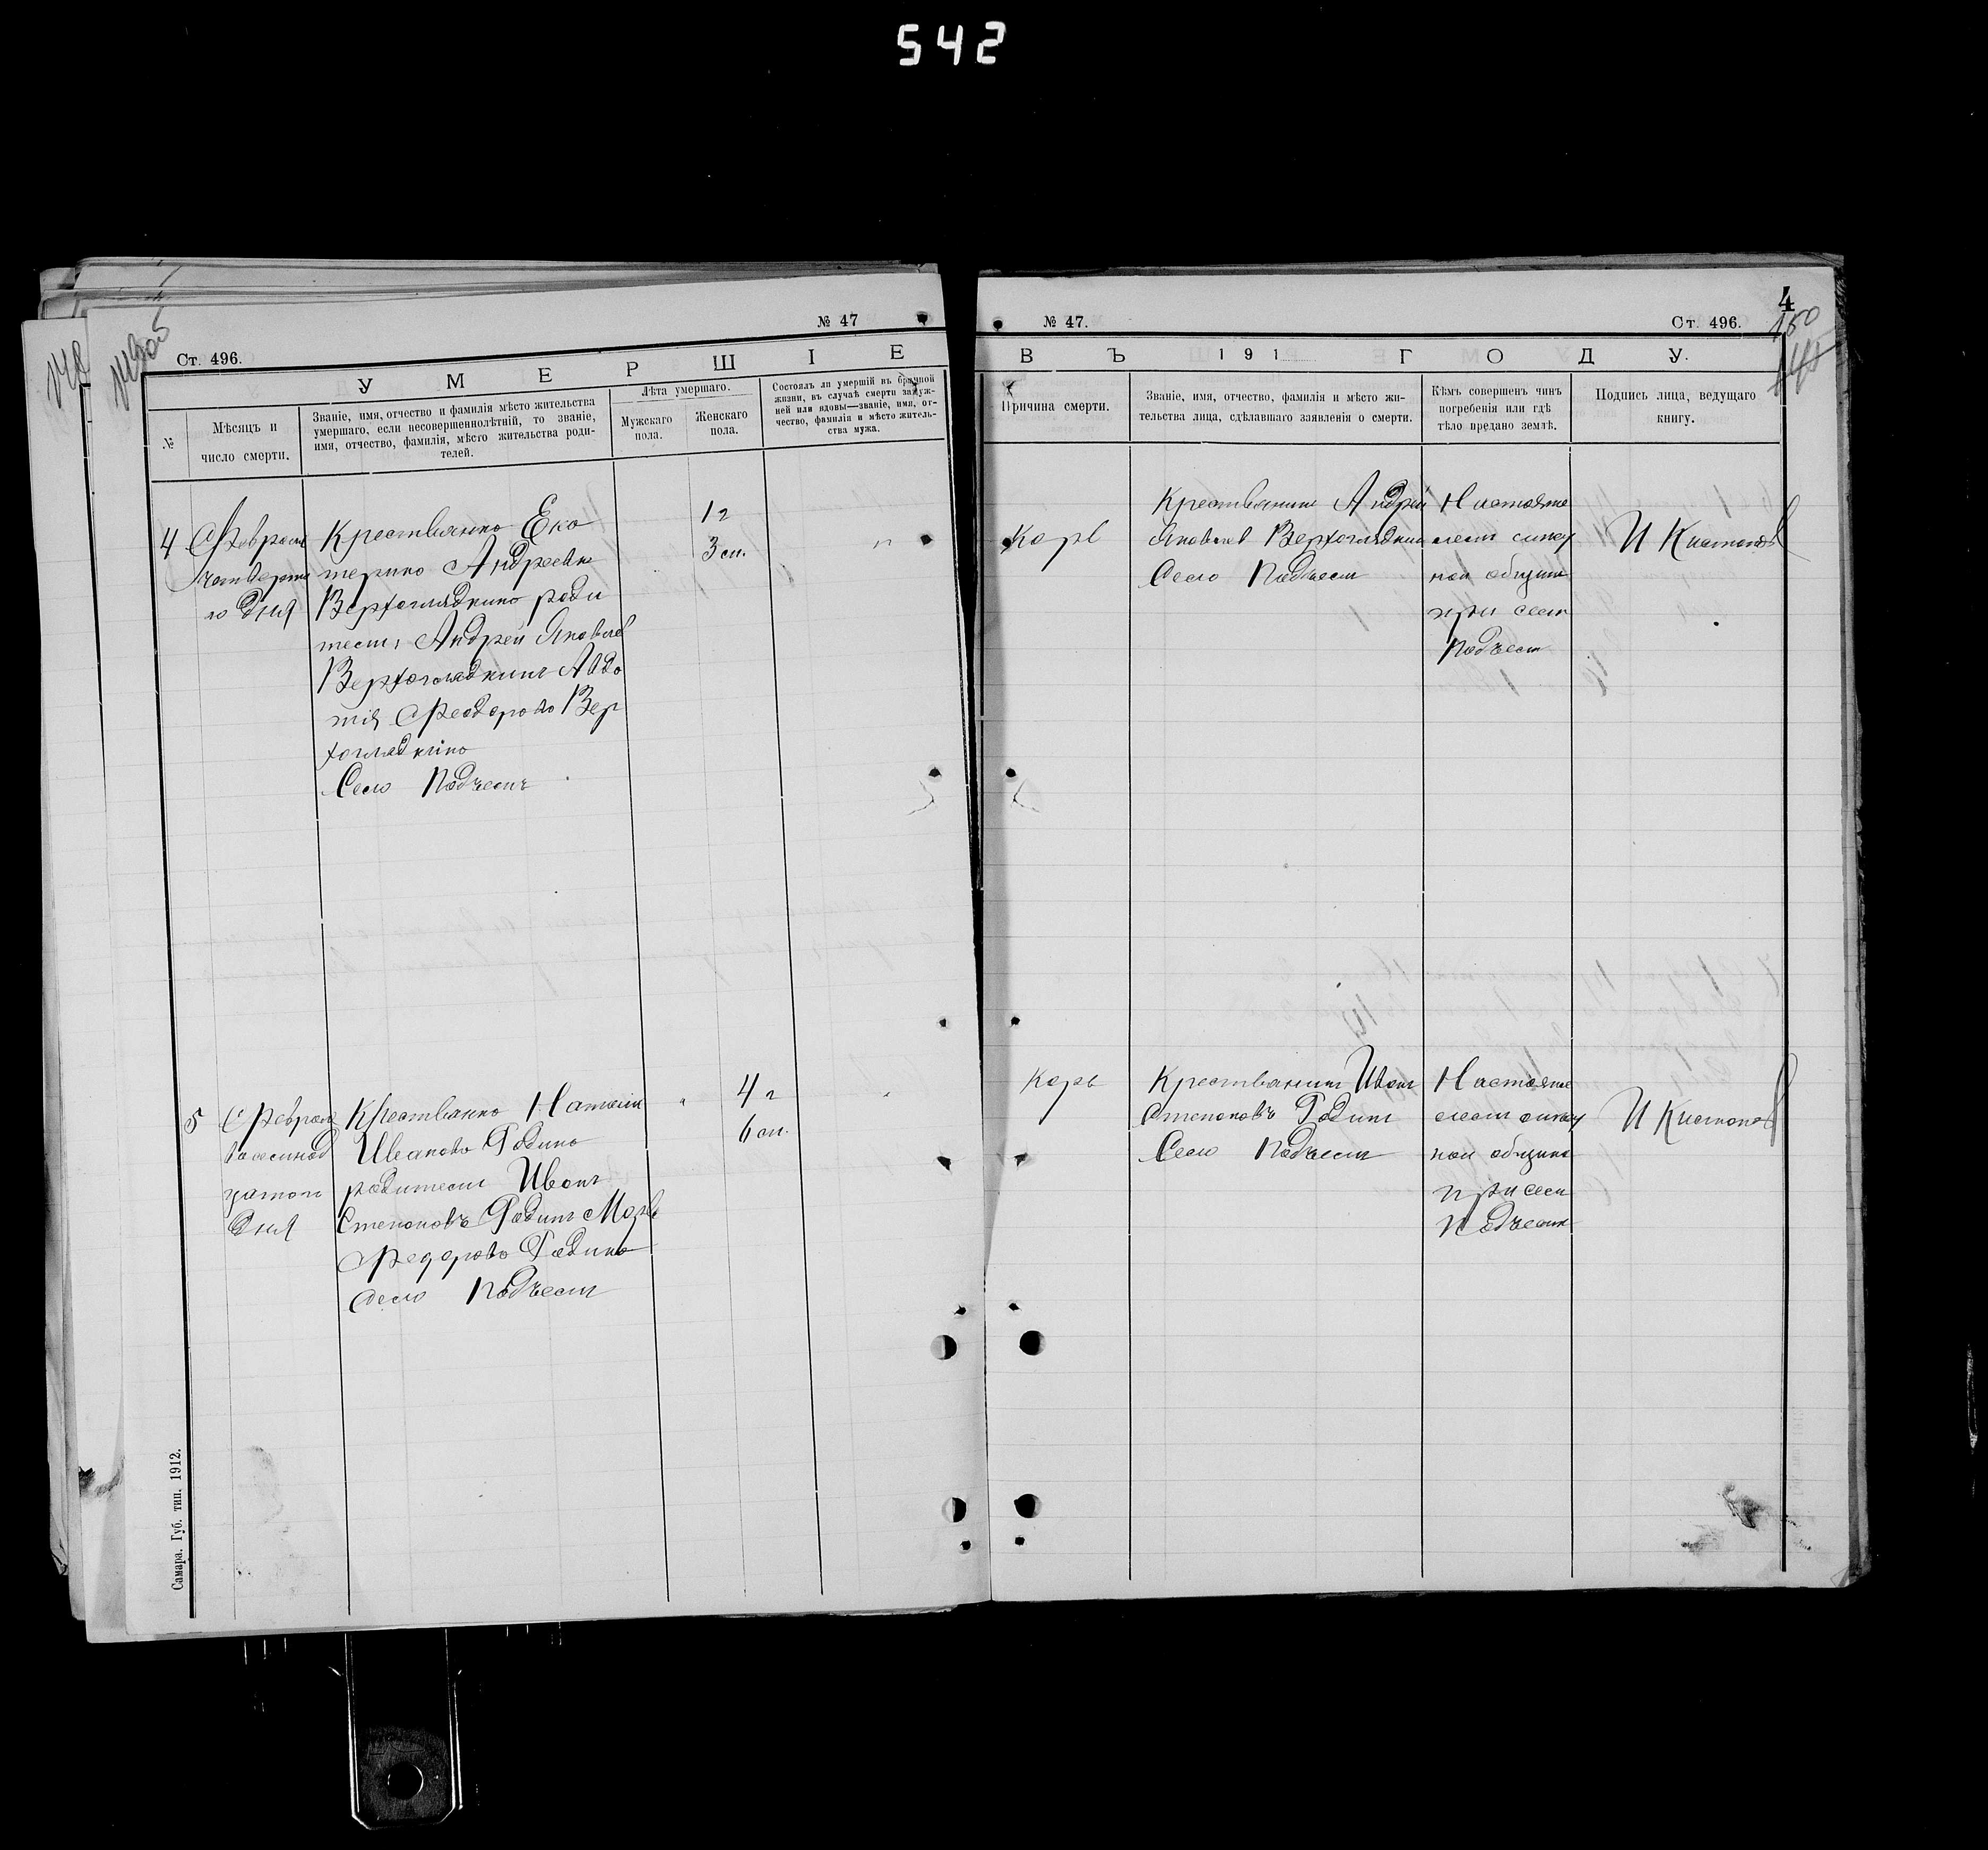 542
№ 47
Ст. 496.
У М Е Р Ш І Е
№
Мѣсяцъ и
число смерти.
Званіе, имя, отчество и фамилія мѣсто жительства
умершаго, если несовершеннолѣтній, то званіе,
имя, отчество, фамилія, мѣсто жительства роди-
телей.
Лѣта умершаго.
Мужскаго
пола.
Женскаго
пола.
Состоялъ ли умершій въ брачной
жизни, въ случаѣ смерти замуж-
ней или вдовы—званіе, имя, от-
чество, фамилія и мѣсто житель-
ства мужа.
4
Февраля
четверта
го дня
Крестьянка Ека
терина Андреевна
Верхоглядкина роди
тели Андрей Яковлев
Верхоглядкинъ Авдо
тія Феодорова Вер
хоглядкина
Село Подъемъ
1 г
3 м.
5
Февраля
дня
Крестьянка Наталия
Иванова Родина
родители Иванъ
Степановъ Родинъ Марья
Федорова Родина
село Подъемъ
4 г
6 м.
Самара. Губ. тип. 1912.
4
№ 47.
Ст. 496.
150
В Ъ 1 9 1 Г О Д У.
Причина смерти.
Званіе, имя, отчество, фамилія и мѣсто жи-
тельства лица, сдѣлавшаго заявленія о смерти.
Кѣмъ совершенъ чинъ
погребенія или гдѣ
тѣло предано землѣ.
Подпись лица, ведущаго
книгу.
Корь
Крестьянинъ Андрей
Яковлев Верхоглядкин
Село Подъемъ
Настояте
лем
ной общины
при селе
Подъем
И
Корь
Крестьянинъ Иванъ
Степановъ Родинъ
Село Подъемъ
Настояте
лем
ной общины
при селе
Подъем
И